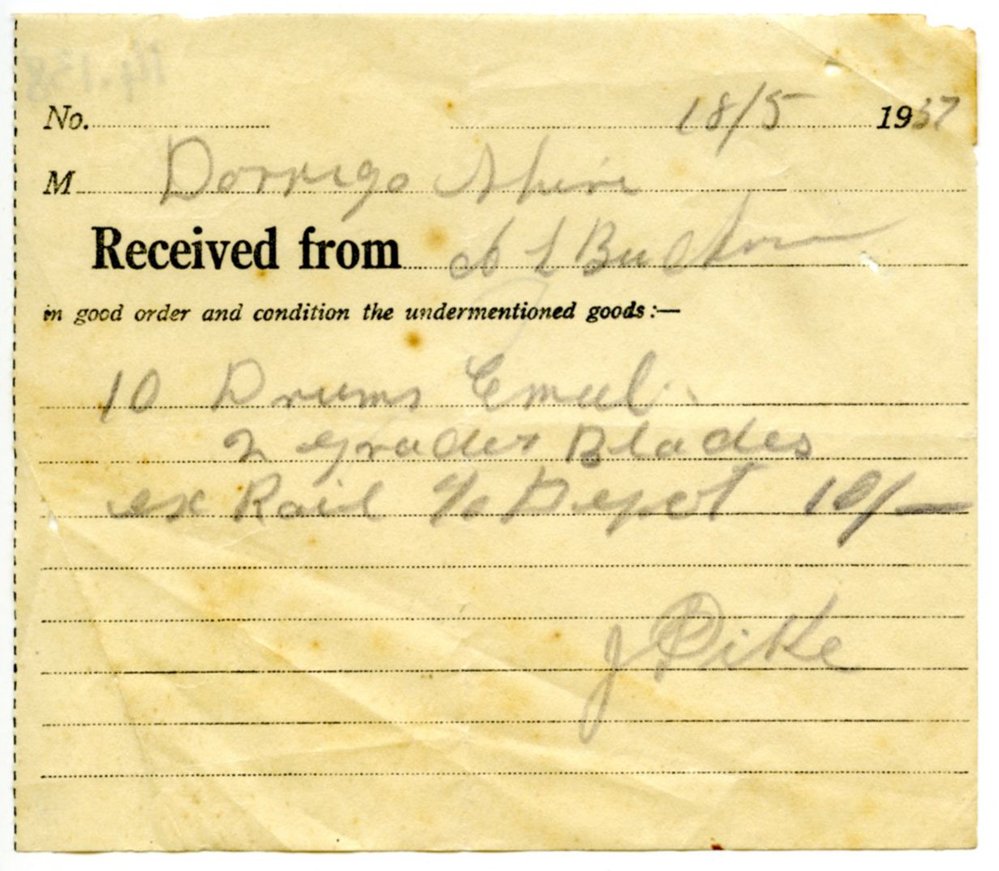 No. 18/5 1937
M Dorrigo Shire
Received from L Buckman
in good order and condition the undermentioned goods:—
10 Drums Emul.
2 Grader Blades
ex Rail % Depot 10/-
J Pike